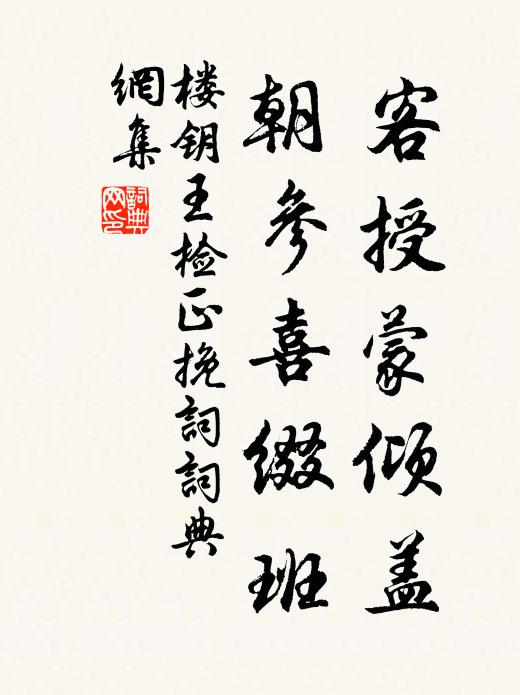 客授蒙倾盖
朝参喜缀班
楼钥王检正挽词词典
網集
詞典
网印